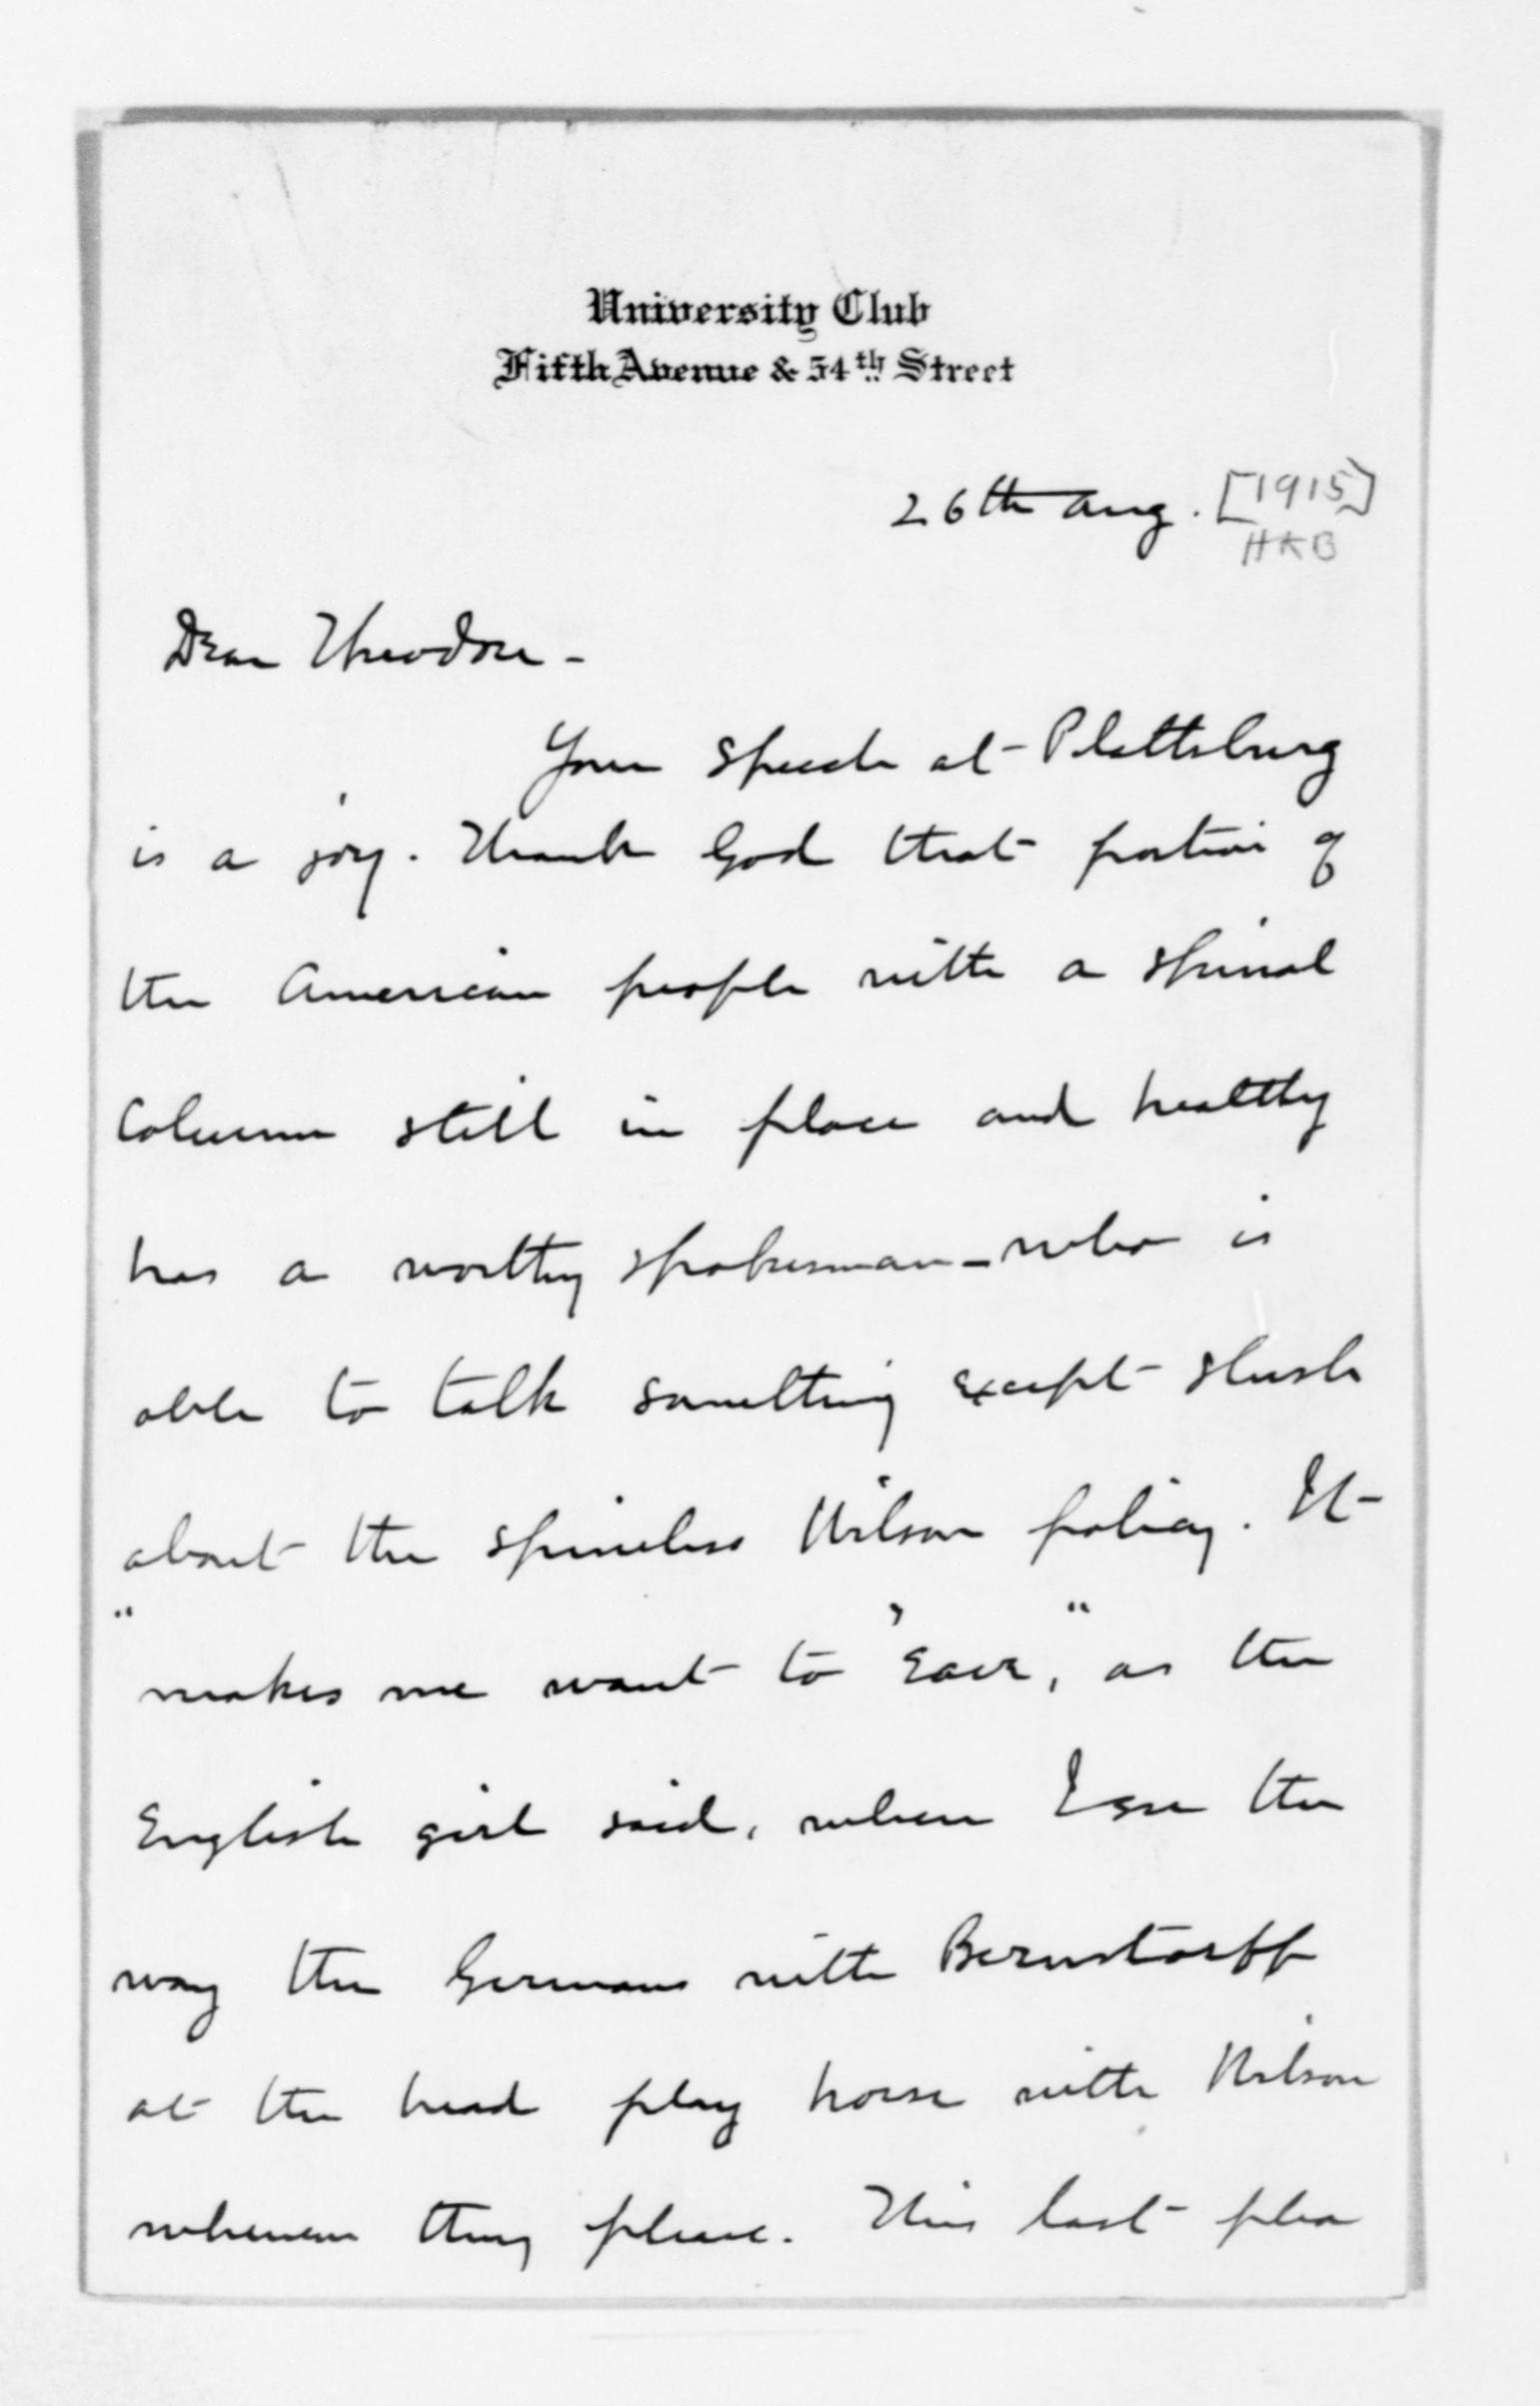 University Club
Fifth Avenue & 54th Street
26th Aug. [1915]
HKB
Dear Theodore -
Your speech at Plattsburg
is a joy. Thank God that portion of
the American people with a spinal
column still in place and healthy
has a worthy spokesman - who is
able to talk something except slush
about the spineless Wilson policy. It
"makes me want to 'eave," as the
English girl said, when I see the
way the Germans with Bernstorff
at the head play horse with Wilson
whenever they please. This last plea